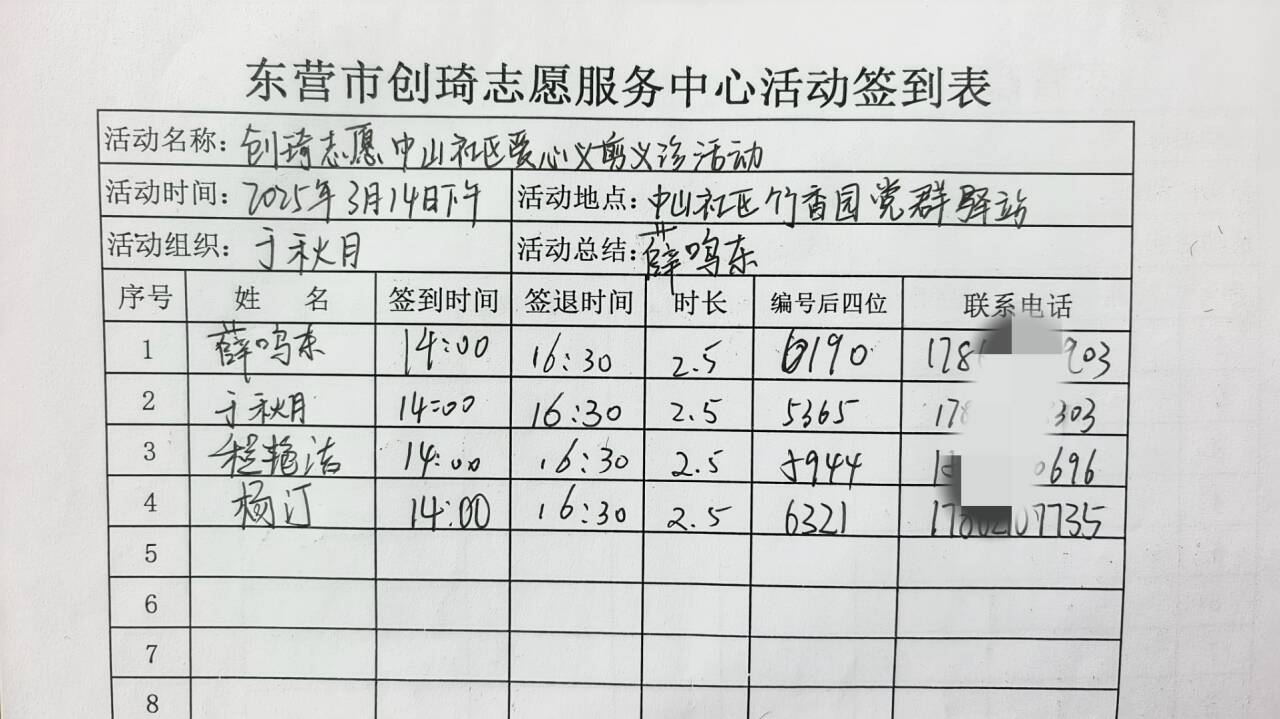 东营市创琦志愿服务中心活动签到表
活动名称：创琦志愿中山社区爱心义剪义诊活动
活动时间：2025年3月14日下午 活动地点：中山社区竹香园党群驿站
活动组织：于秋月 活动总结：薛鸣东
序号 姓 名 签到时间 签退时间 时长 编号后四位 联系电话
1 薛鸣东 14:00 16:30 2.5 6190 178 903
2 于秋月 14:00 16:30 2.5 5365 17 303
3 程艳洁 14:00 16:30 2.5 5944 0696
4 杨汀 14:00 16:30 2.5 6321 7735
5
6
7
8